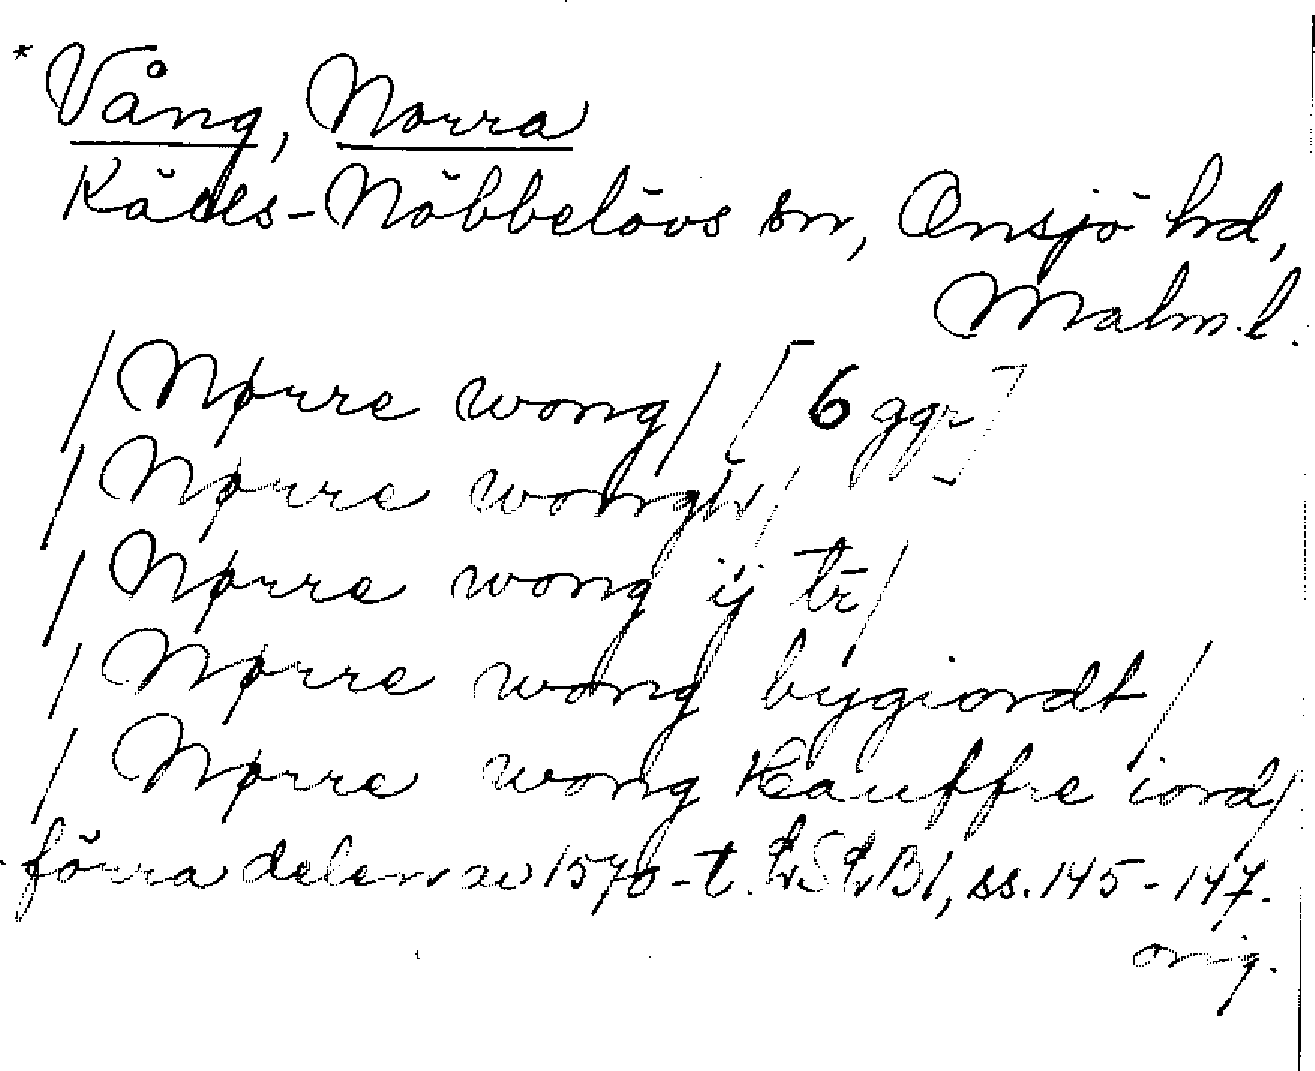 * Vång, Norra
Källs-Nöbbelövs sn, Onsjö hd,
Malm. l.
/Nørre wong/ [6 ggr]
/Nørre wongh/
/Nørre wong ij tr̄/
/Nørre wong bygiordt/
/Nørre wong Kauffre iord/
förra delen av 1570-t. LSLB1, ss. 145-147.
orig.